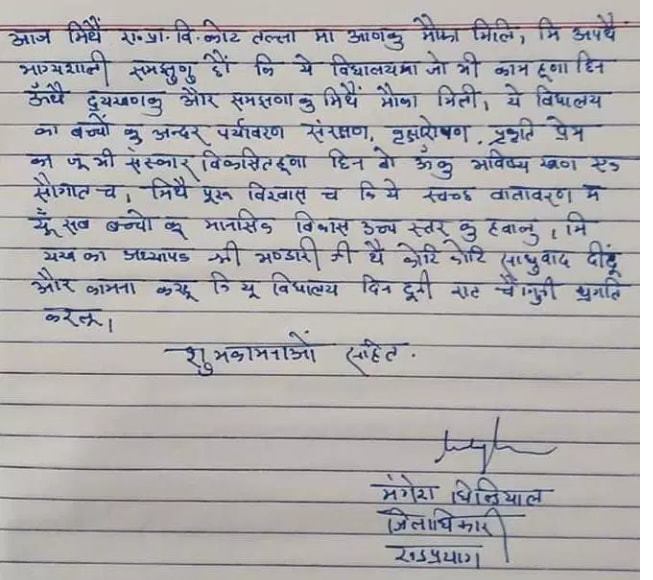 आज मिथैं रा.प्रा.वि.कोट तल्ला मा आणकु मौका मिलि, मि अपथै
भाग्यशाली समझणु छौं कि ये विद्यालयमा जो भी काम हूणा छिन
ऊँथै दूयखणकु और समझणा कु मिथैं मौका मिली, ये विद्यालय
का बच्चों कु अन्दर पर्यावरण संरक्षण, वृक्षारोपण, प्रकृति प्रेम
का जू भी संस्कार विकसित हूणा छिन वो ऊँकु भविष्य खुण एक
सौगात च, मिथै पूरू विश्वास च कि ये स्वच्छ वातावरण म
यूँ सब बच्चों कू मानसिक विकास उच्च स्तर कु ह्वालु, मि
यख का अध्यापक श्री भण्डारी जी थै कोटि कोटि साधुवाद दींदू
और कामना करदू कि यू विद्यालय दिन दूनी रात चौगुनी प्रगति
करलू।
शुभकामनाओं सहित.
मंगेश घिल्डियाल
जिलाधिकारी
रूद्रप्रयाग